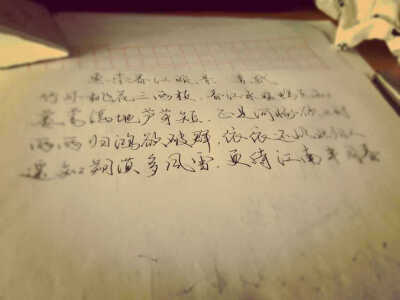 惠崇春江晚景 苏轼
竹外桃花三两枝,春江水暖鸭先知
蒌蒿满地芦芽短,正是河豚欲上时
两两归鸿欲破群,依依还似北归人
遥知朔漠多风雪,更待江南半月春